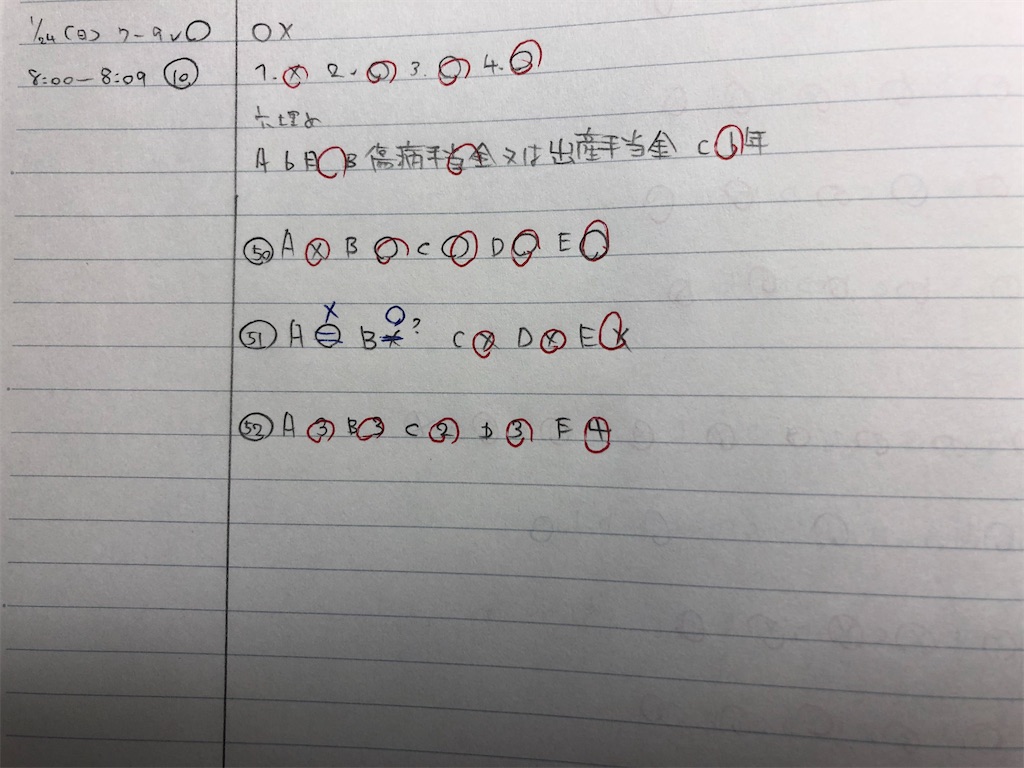 1/24(日) 7-9 ○
8:00-8:09 ⑩
○×
1.× 2.○ 3.○ 4.○
穴埋め
A 6月 B 傷病手当金又は出産手当金 C 1年
㊿ A × B ○ C ○ D ○ E ○
× ○
51 A ○ B ×? C × D × E ×
52 A 3 B 3 C 2 D 3 E 4